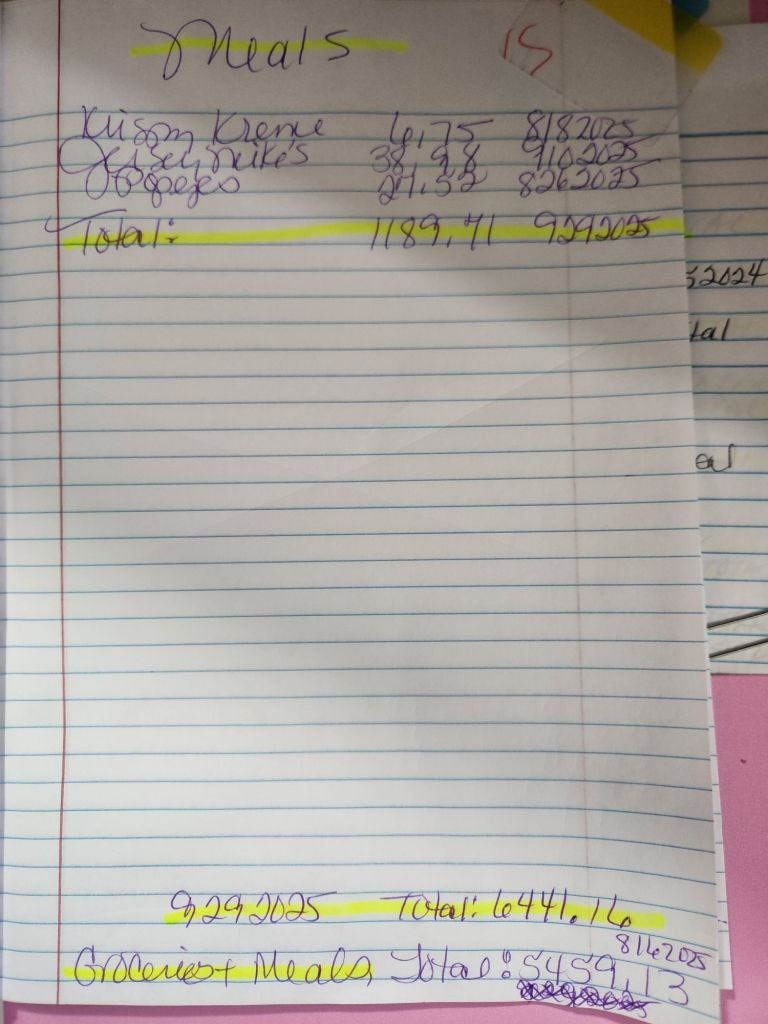 Meals 15
Krispy Kreme 6.75 8182025
Jersey Mike's 38.98 9102025
Popeyes 27.52 8262025
Total: 1189.71 9292025
52024
tal
9292025 Total: 6441.16
8162025
Groceries + Meals Total: 5459.13